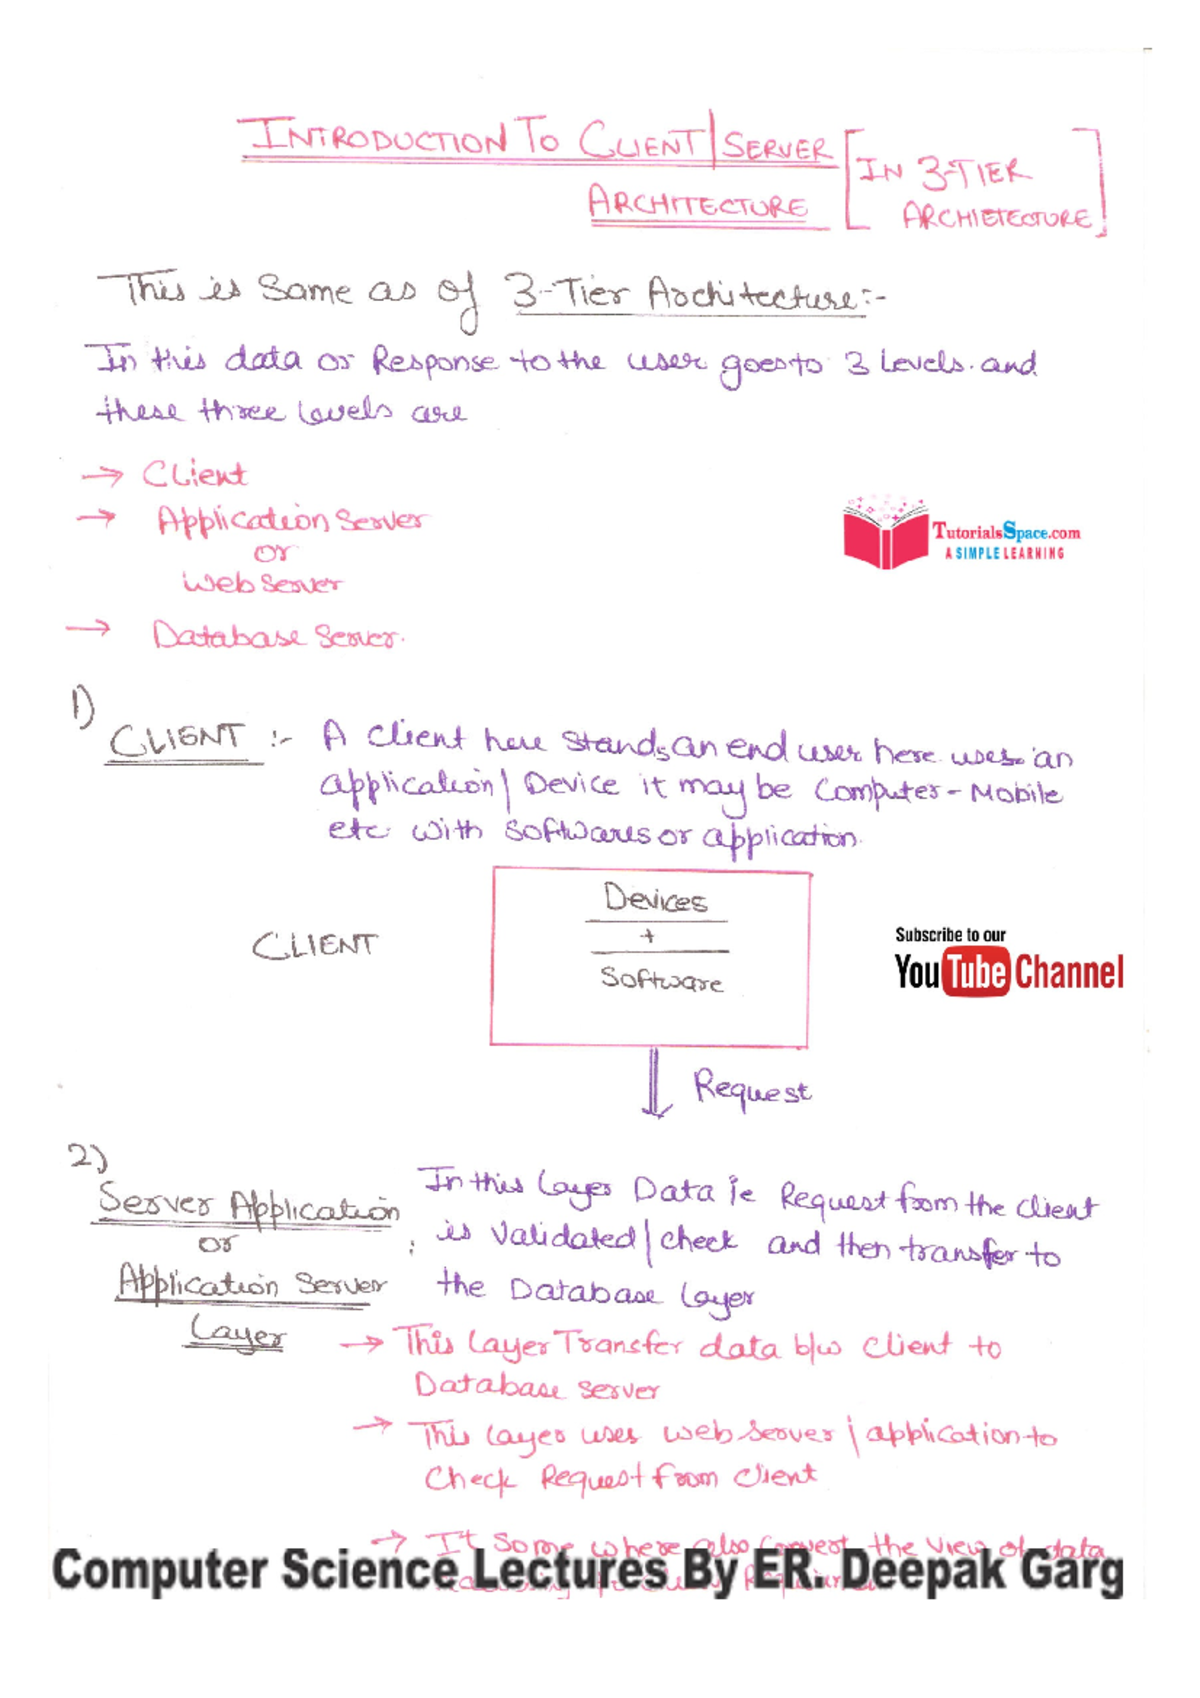 INTRODUCTION TO CLIENT|SERVER [IN 3-TIER
ARCHITECTURE ARCHIETECTURE]
This is Same as of 3-Tier Architecture:-
In this data or Response to the user goes to 3 Levels. and
these three levels are
→ CLient
→ Application Server
or
Web Server
→ Database Server.
TutorialsSpace.com
A SIMPLE LEARNING
1)
CLIENT :- A Client here stands an end user here uses an
application| Device it may be Computer - Mobile
etc. with Softwares or application.
Devices
+
Software
CLIENT
Subscribe to our
YouTube Channel
Request
2)
Server Application
or
Application Server
Layer
: In this Layer Data ie Request from the client
is Validated|check and then transfer to
the Database Layer
→ This Layer Transfer data b/w Client to
Database server
→ This Layer uses web server| application to
Check Request from Client
→ It Some where also the view of data
Computer Science Lectures By ER. Deepak Garg